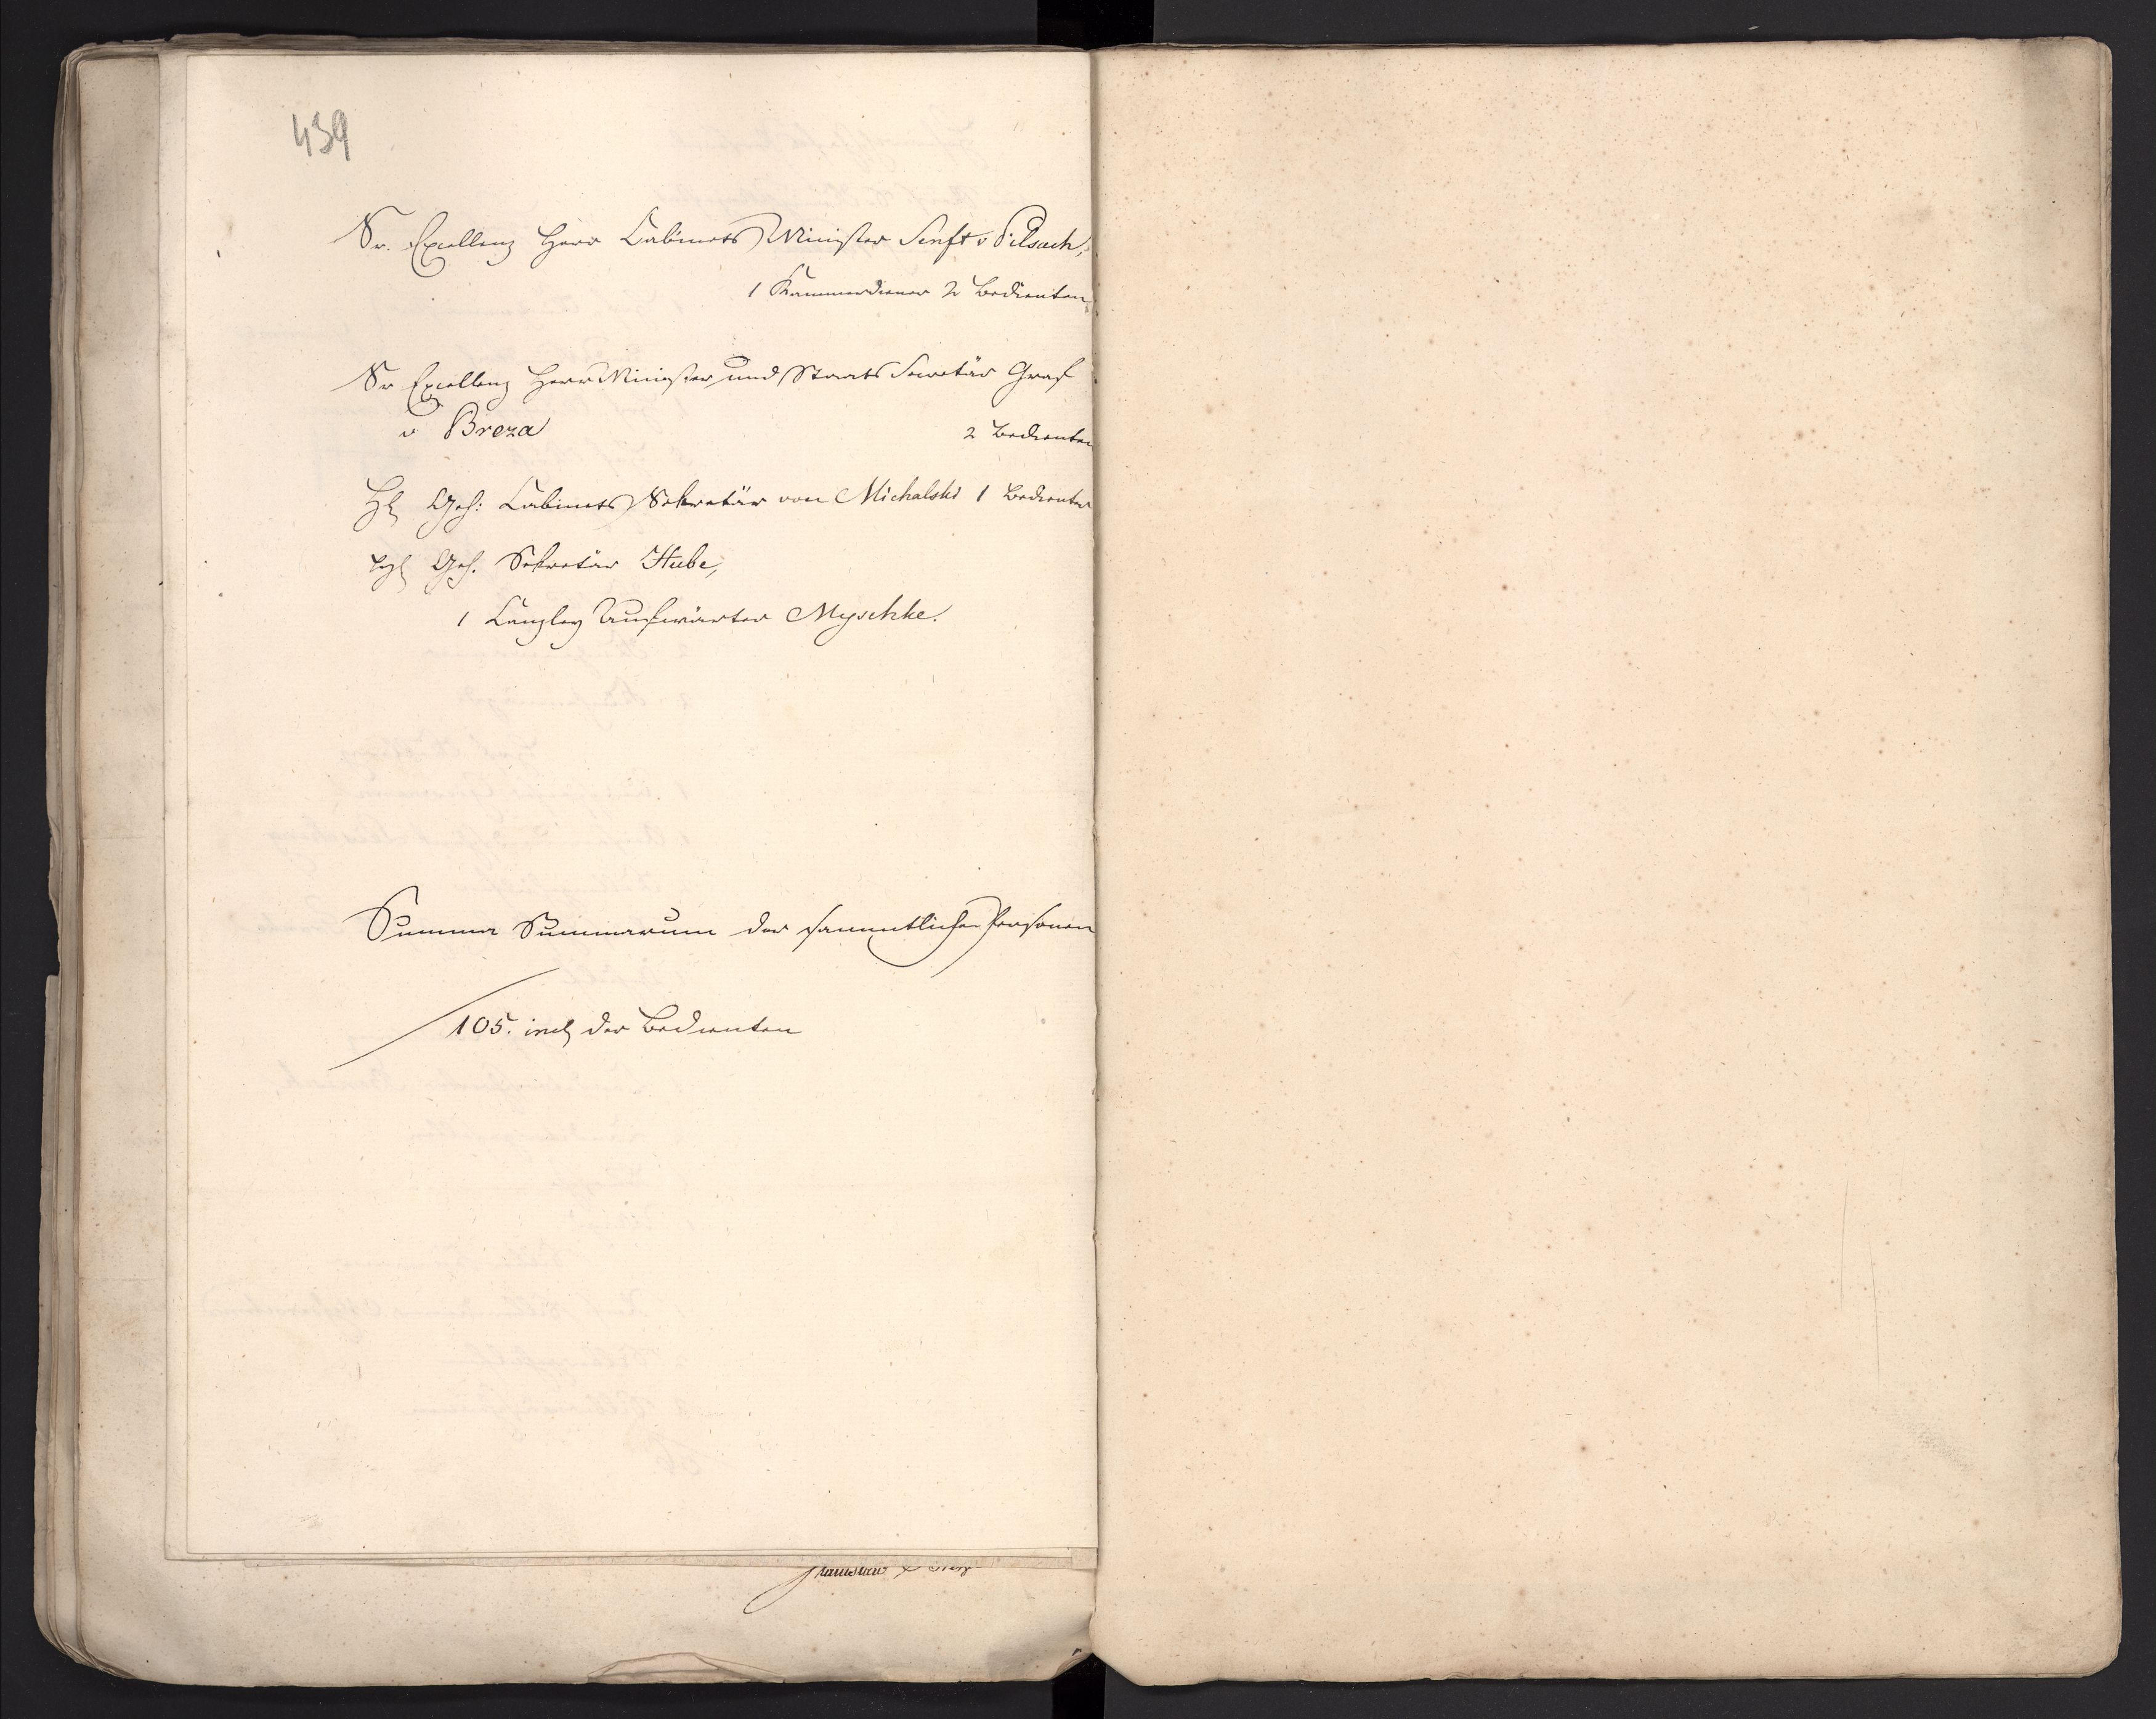 439
Sr. Excellenz Herr Cabinets Minister Senft v Pilsach,
1 Kammerdiener 2 Bedienten,
Sr Excellenz Herr Minister und Staats Secretär Graf
v Breza 2 Bedienten
H Geh: Cabinets Sekretär von Michalski 1 Bedienter
Geh. Sekretär Hube,
1 Canzley Aufwärter Myschke.
Summa Summarum der sammtlichen Personen
105. incl der Bedienten